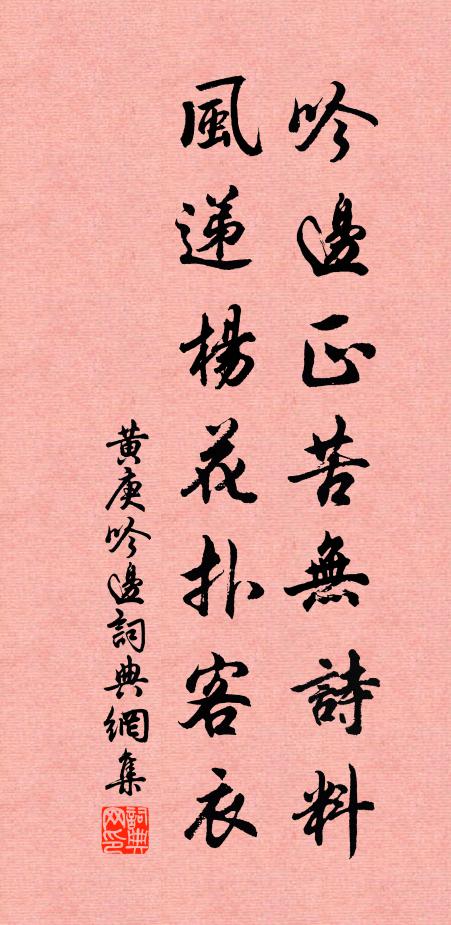 吟邊正苦無詩料
風遞楊花扑客衣
黃庚吟邊詞典網集
詞典網印